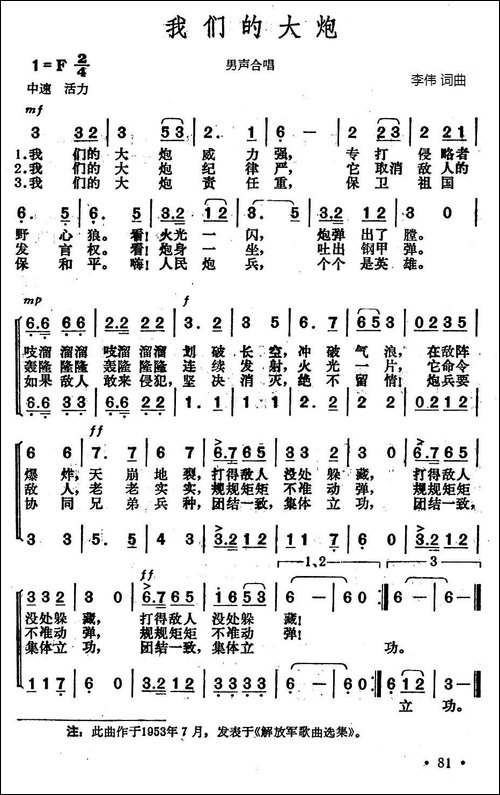 我们的大炮
1=F 2/4
男声合唱
中速 活力
李伟 词曲
mf
3 32 | 3 53 | 2. 1 | 6 — | 2 23 | 2 21 |
1.我 们的 大 炮 威 力 强， 专 打 侵 略者
2.我 们的 大 炮 纪 律 严， 它 取消 敌 人的
3.我 们的 大 炮 责 任 重， 保 卫 祖 国
6. 5 | 6. 5 | 3.2 12 | 3. 5 | 3.2 12 | 3 0 |
野 心 狼。 看！ 火光 一 闪， 炮弹 出了 膛。
发 言 权。 看！ 炮身 一 坐， 吐出 钢甲 弹。
保 和 平。 嗨！ 人民 炮 兵， 个个 是英 雄。
mp f
6.6 66 | 2.2 22 | 3. 2 | 3 5 | 6. 7 | 653 | 0235 |
吱溜 溜溜 吱溜 溜溜 划 破 长 空， 冲 破 气 浪， 在敌阵
轰隆 隆隆 轰隆 隆隆 连 续 发 射， 火 光 一 片， 它命令
如果 敌人 敢来 侵犯， 坚 决 消 灭， 绝 不 留 情！ 炮兵要
6.6 33 | 6.6 66 | 1. 2 | 3 1 | 2. 2 | 2 — | 0212 |
ff
6 6 | 7. 6 | 7 6 | 6.765 | 33 2 | 3 0 | 6.765 |
爆 炸， 天 崩 地 裂， 打得敌人 没处 躲 藏， 打得敌人
敌 人， 老 老 实 实， 规规矩矩 不准 动 弹， 规规矩矩
协 同 兄 弟 兵 种， 团结一致， 集体 立 功， 团结一致，
3 3 | 5. 5 | 4 3 | 3.212 | 11 7 | 3 0 | 3.212 |
1，2 3
ff
332 | 3 0 | 6.765 | 1653 | 6 — | 60 :| 6 — | 6 — ||
没处躲 藏， 打得敌人 没处躲 藏！
不准动 弹， 规规矩矩 不准动 弹！
集体立 功， 团结一致， 集体立 功。
117 | 6 0 | 3.212 | 3.212 | 6 — | 60 :| 612 | 6 — ||
立 功。
注：此曲作于1953年7月，发表于《解放军歌曲选集》。
· 81 ·